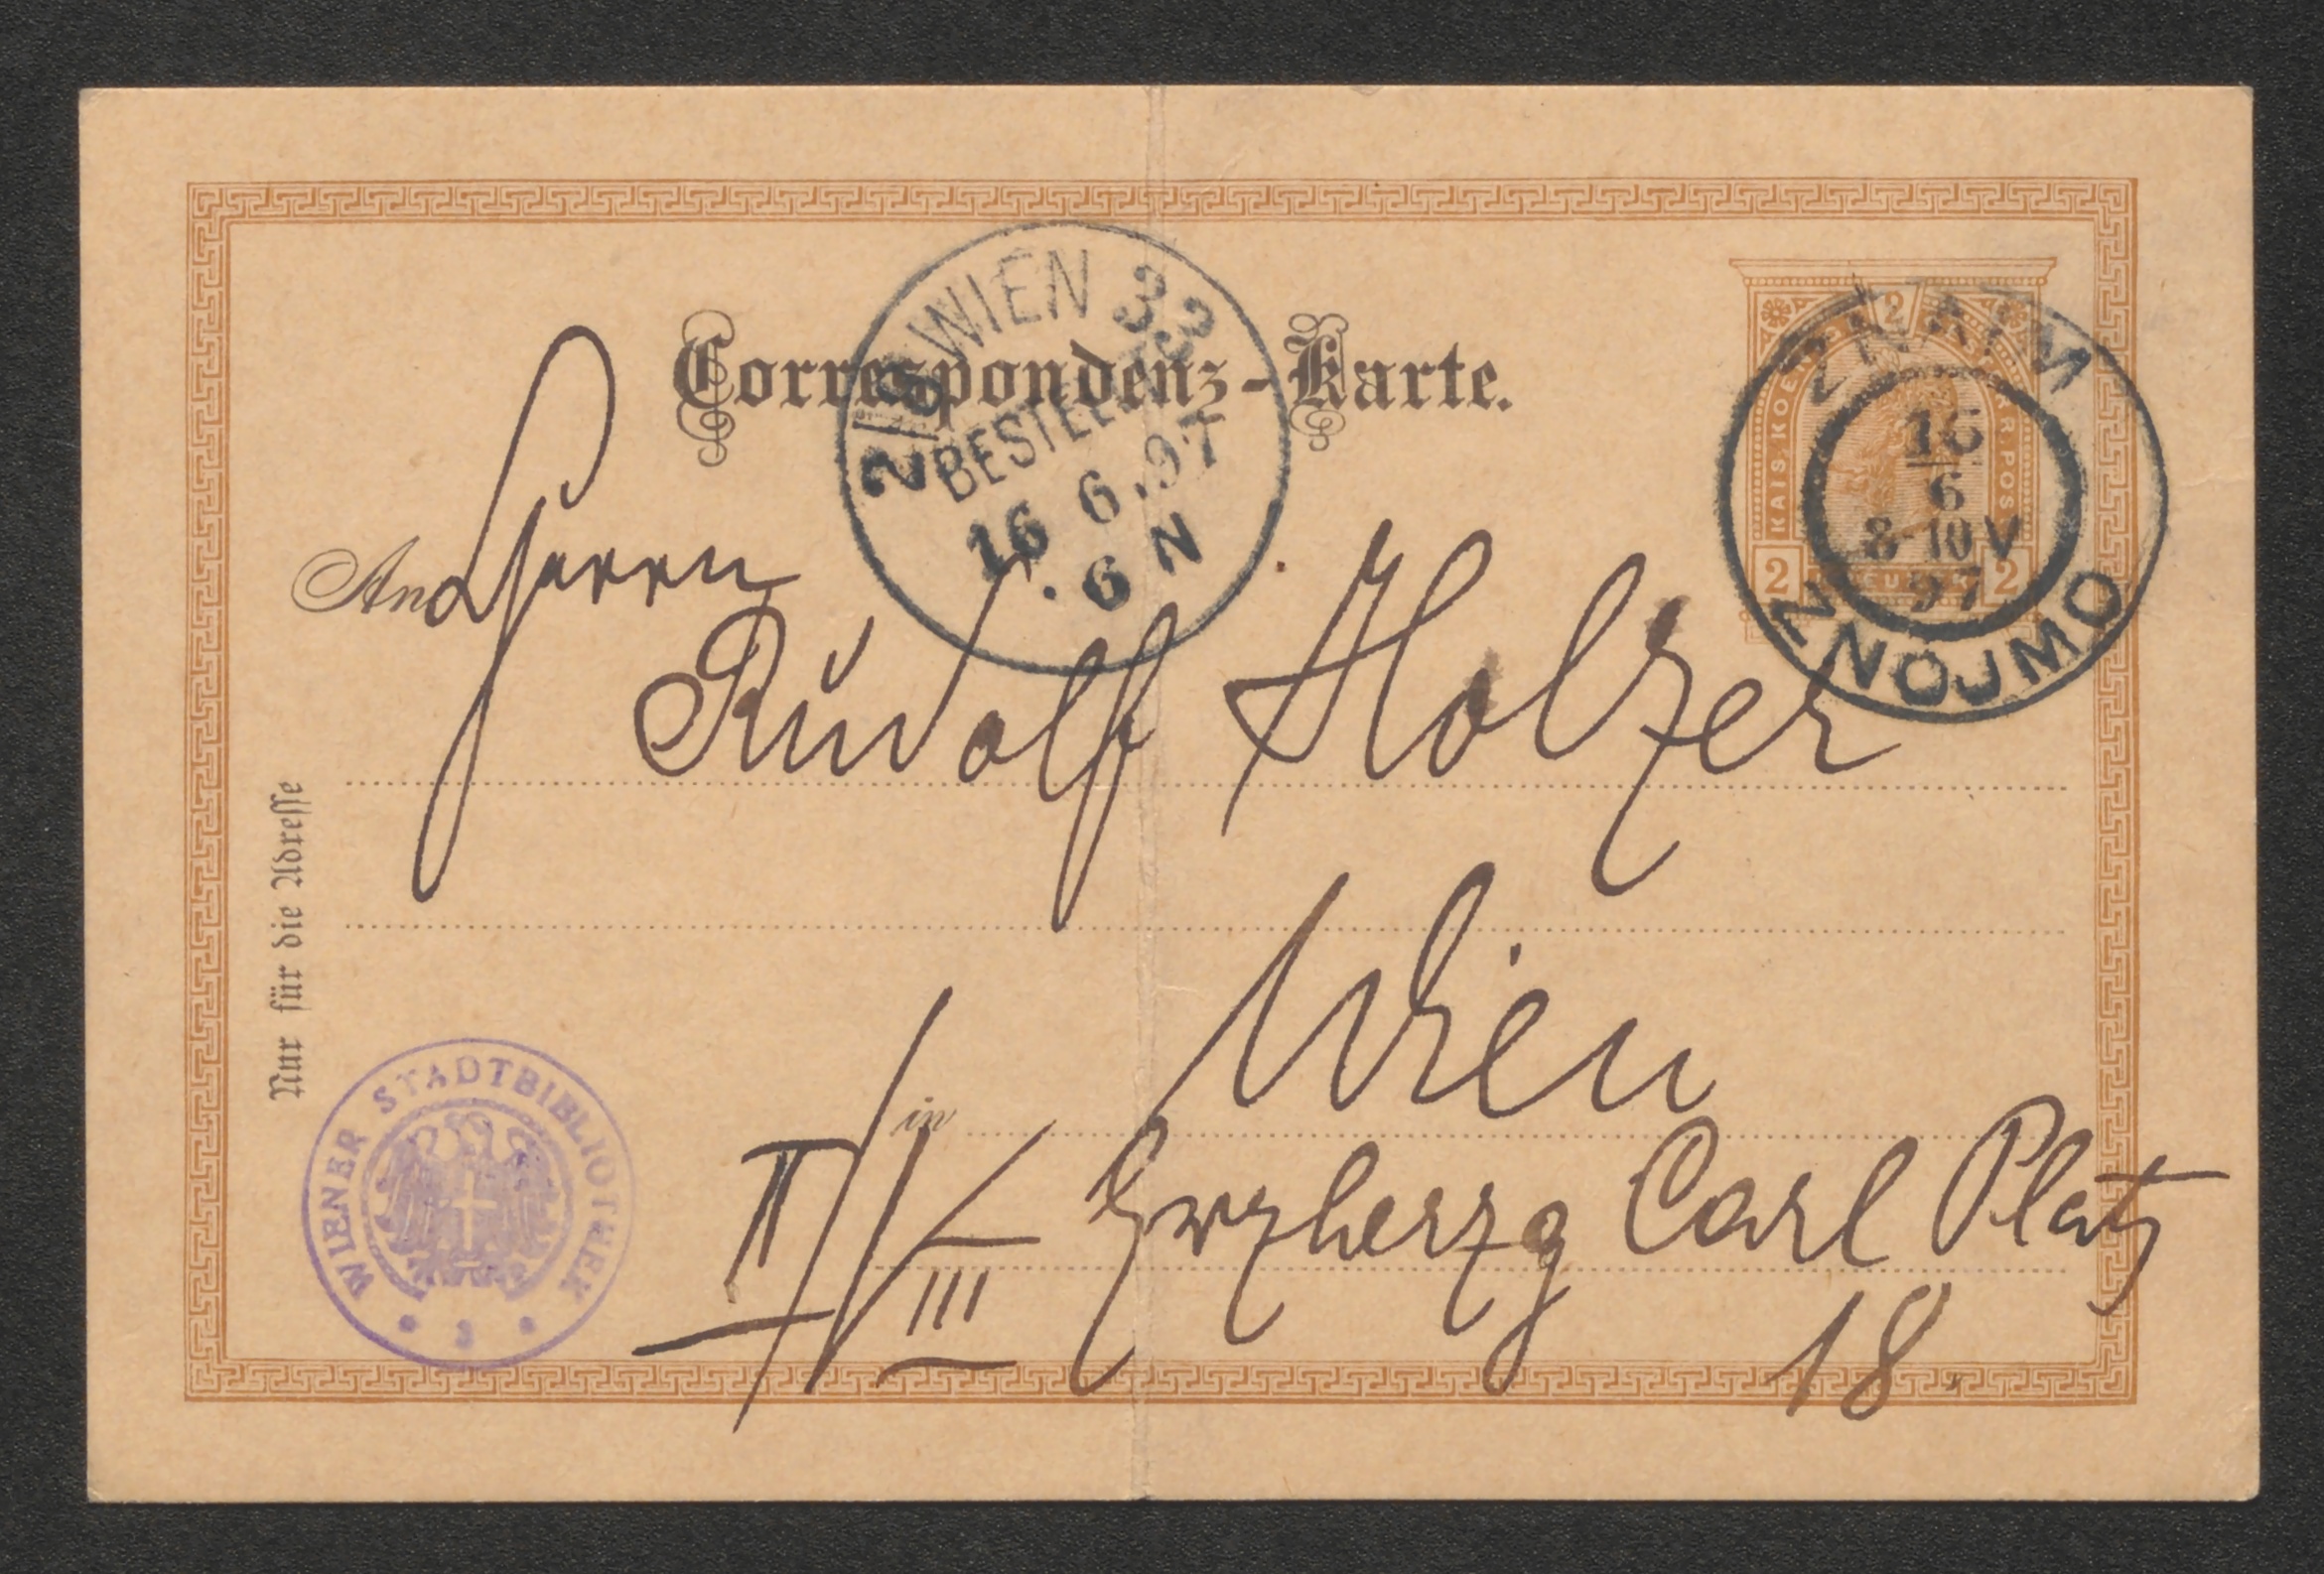 Correspondenz-Karte.
WIEN 33
2/8
BESTELLT
16 6.97
. 6 N
2
KAIS. KOE
R. POS
2 2
ZNAIM
16
6
8-10 V
97
ZNOJMO
An Herrn
Rudolf Holzer
Nur für die Adresse
in Wien
II/ III Erzherzog Carl Platz
18.
WIENER STADTBIBLIOTHEK